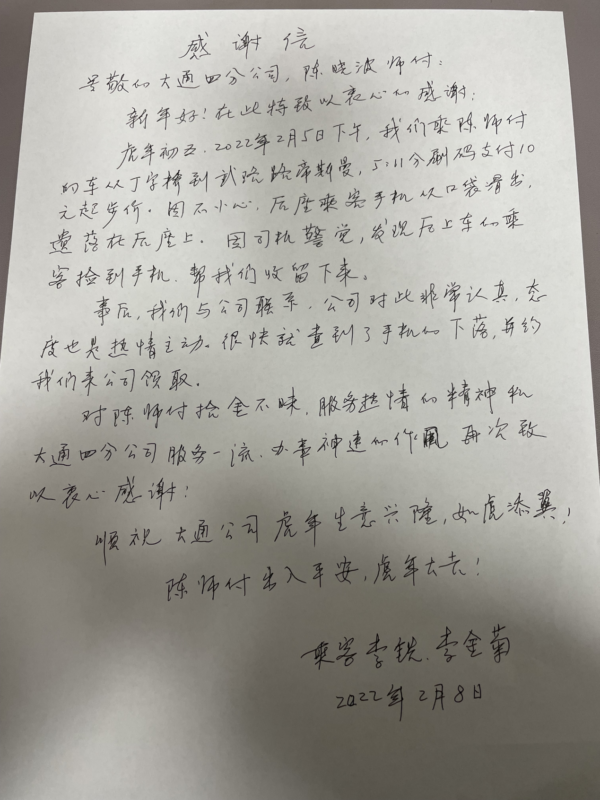 感谢信
尊敬的大通四分公司，陈晓波师付：
新年好！在此特致以衷心的感谢：
虎年初五，2022年2月5日下午，我们乘陈师付
的车从丁字桥到武珞路帝斯曼，5:11分刷码支付10
元起步价。因不小心，后座乘客手机从口袋滑出，
遗落在后座上。因司机警觉，发现后上车的乘
客捡到手机，帮我们收留下来。
事后，我们与公司联系，公司对此非常认真，态
度也是热情主动。很快就查到了手机的下落，并约
我们来公司领取。
对陈师付拾金不昧，服务热情的精神和
大通四分公司服务一流、办事神速的作风再次致
以衷心感谢！
顺祝大通公司虎年生意兴隆，如虎添翼！
陈师付出入平安，虎年大吉！
乘客李铣、李金菊
2022年2月8日